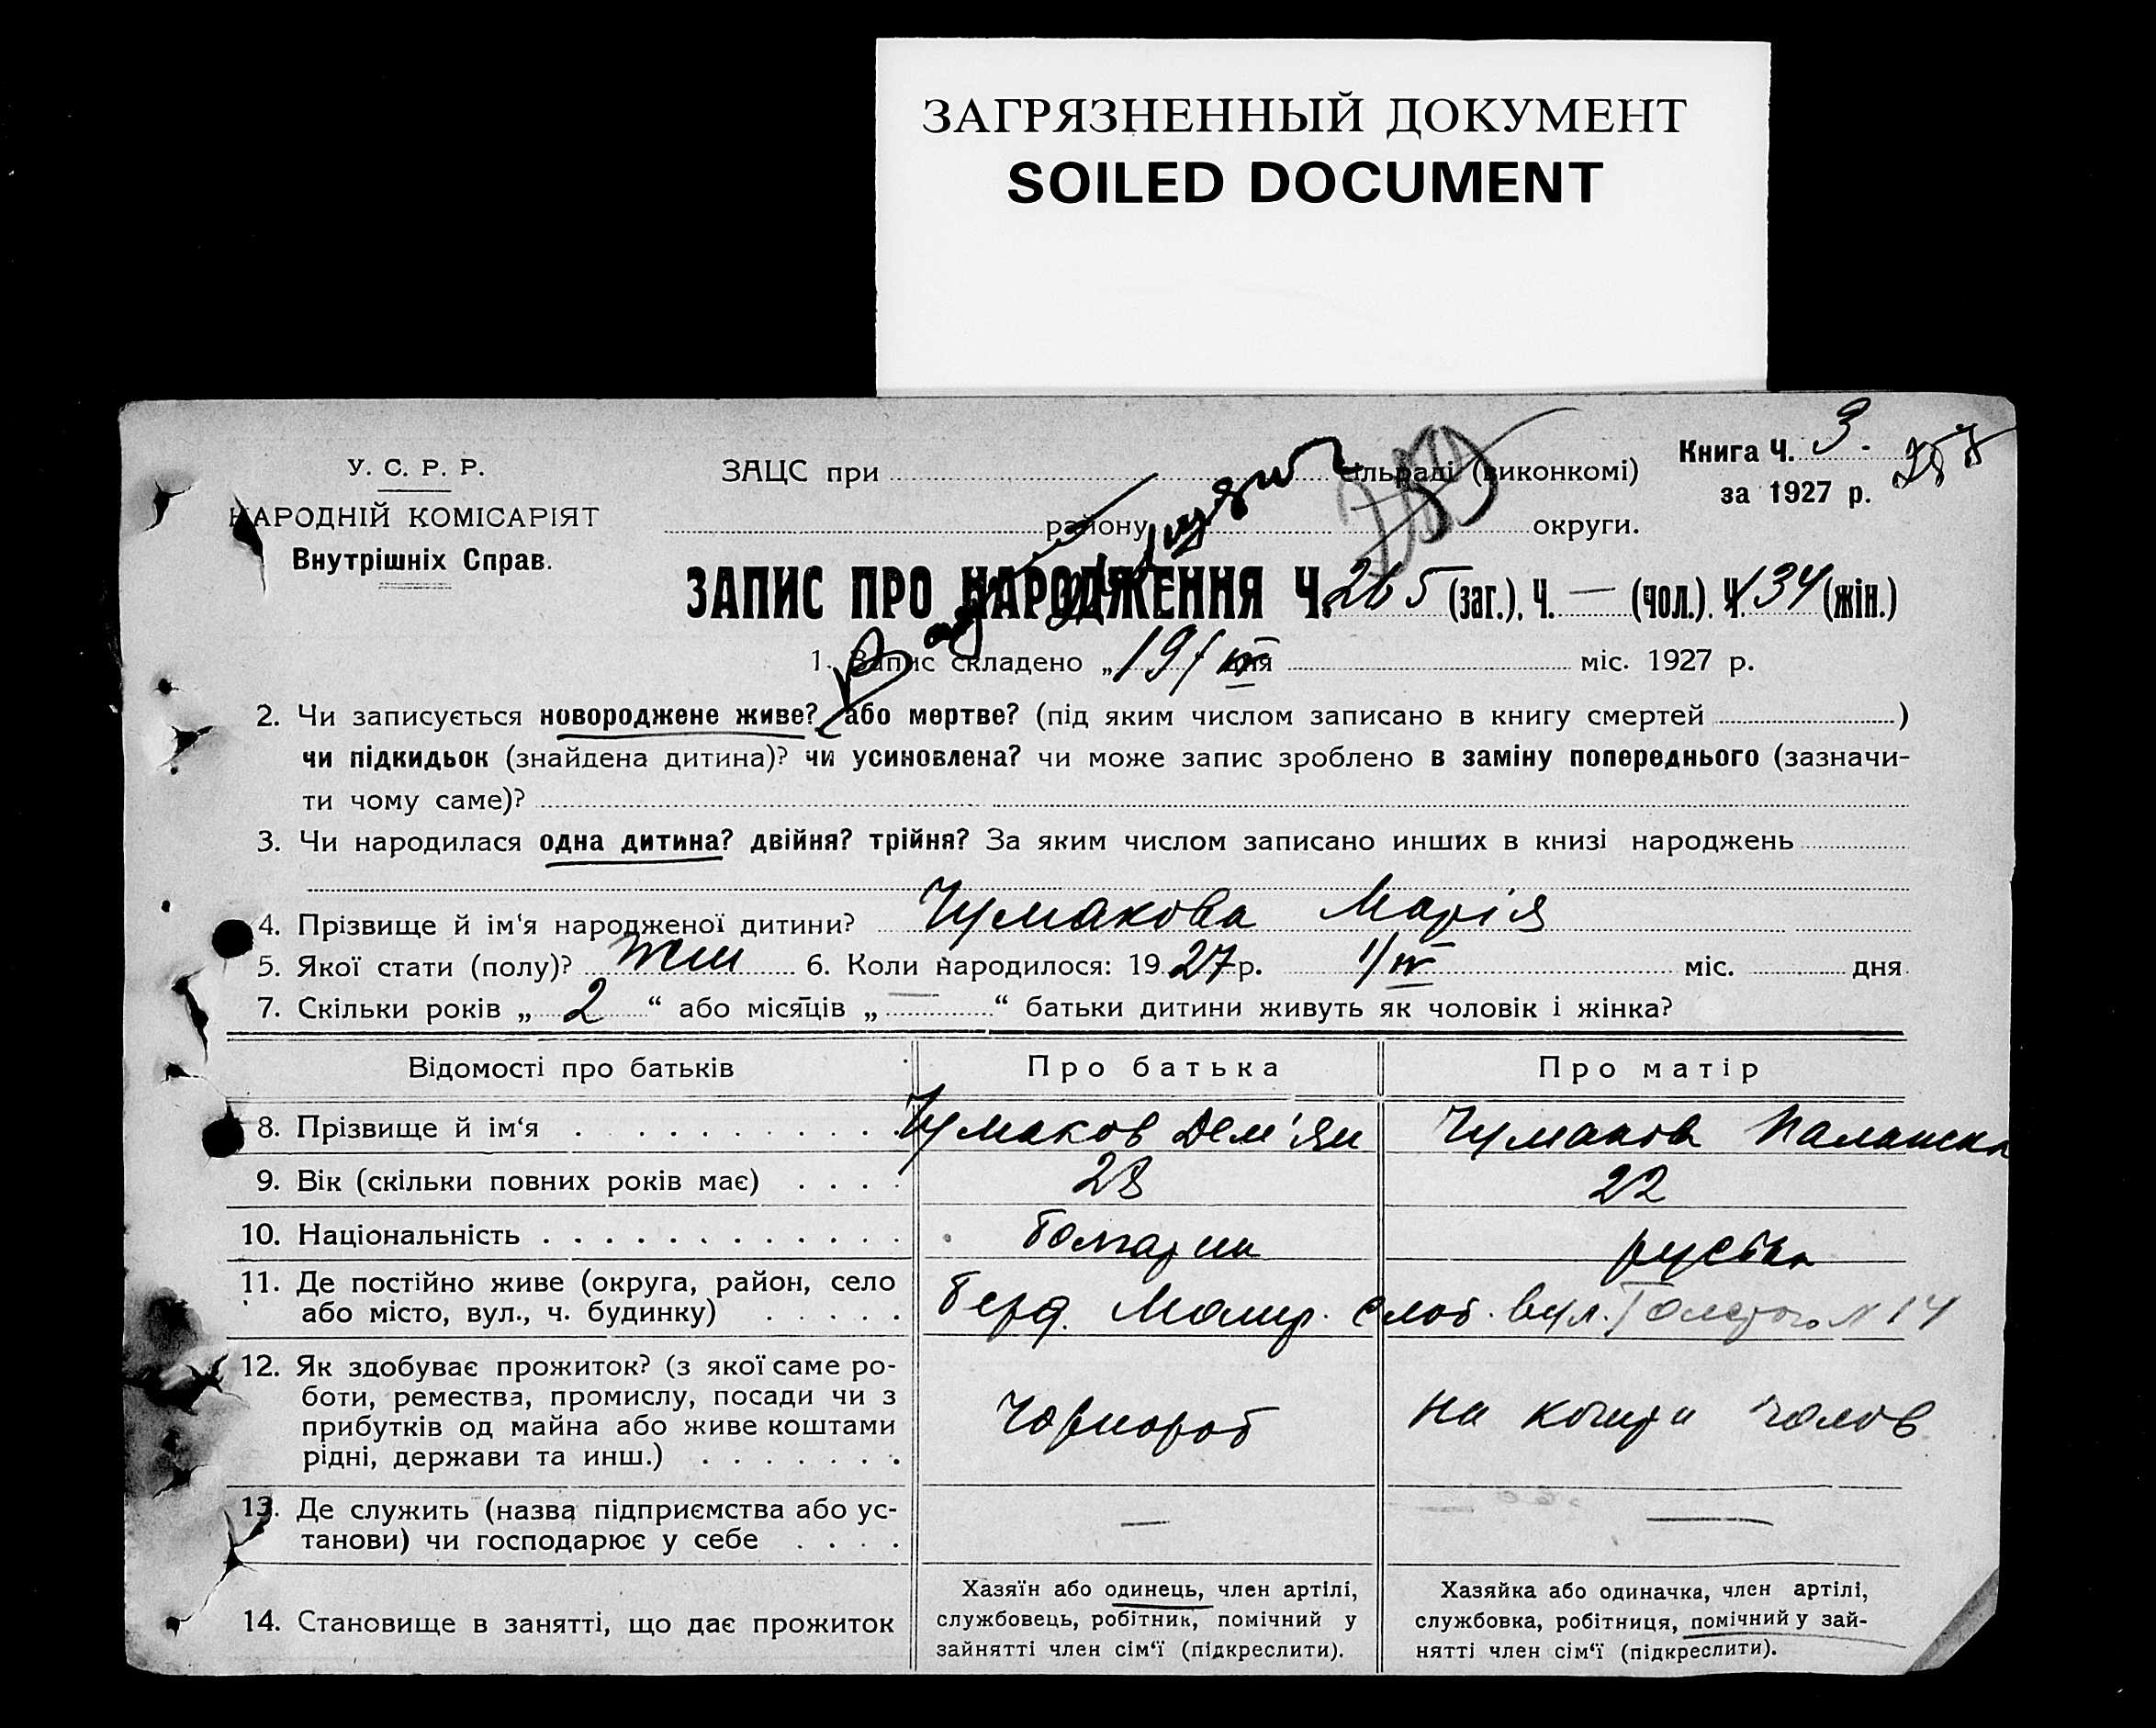 ЗАГРЯЗНЕННЫЙ ДОКУМЕНТ
SOILED DOCUMENT
У. С. Р. Р.
НАРОДНІЙ КОМІСАРІЯТ
Внутрішніх Справ.
ЗАЦС при сільраді (виконкомі)
району округи.
Книга Ч. 3
за 1927 р.
ЗАПИС ПРО НАРОДЖЕННЯ Ч. 265 (заг.). Ч. — (чол.). Ч. 134 (жін.)
1. Запис складено „ 19/IV дня міс. 1927 р.
2. Чи записується новороджене живе? або мертве? (під яким числом записано в книгу смертей )
чи підкидьок (знайдена дитина)? чи усиновлена? чи може запис зроблено в заміну попереднього (зазначи-
ти чому саме)?
3. Чи народилася одна дитина? двійня? трійня? За яким числом записано инших в книзі народжень
4. Прізвище й ім‘я народженої дитини? Чумакова Марія
5. Якої стати (полу)? жін 6. Коли народилося: 1927 р. 1/IV міс. дня
7. Скільки років „ 2 “ або місяців „ — “ батьки дитини живуть як чоловік і жінка?
Відомості про батьків Про батька Про матір
8. Прізвище й ім‘я Чумаков Дем'ян Чумакова
9. Вік (скільки повних років має) 28 22
10. Національність болгарин руська
11. Де постійно живе (округа, район, село
або місто, вул., ч. будинку) Берд. слоб. вул. Толстого N 14
12. Як здобуває прожиток? (з якої саме ро-
боти, ремества, промислу, посади чи з
прибутків од майна або живе коштами
рідні, держави та инш.)
Чорнороб на кошти чолов
13. Де служить (назва підприємства або ус-
танови) чи господарює у себе — —
14. Становище в занятті, що дає прожиток
Хазяїн або одинець, член артілі,
службовець, робітник, помічний у
зайнятті член сім‘ї (підкреслити).
Хазяйка або одиначка, член артілі,
службовка, робітниця, помічний у зай-
нятті член сім‘ї (підкреслити).